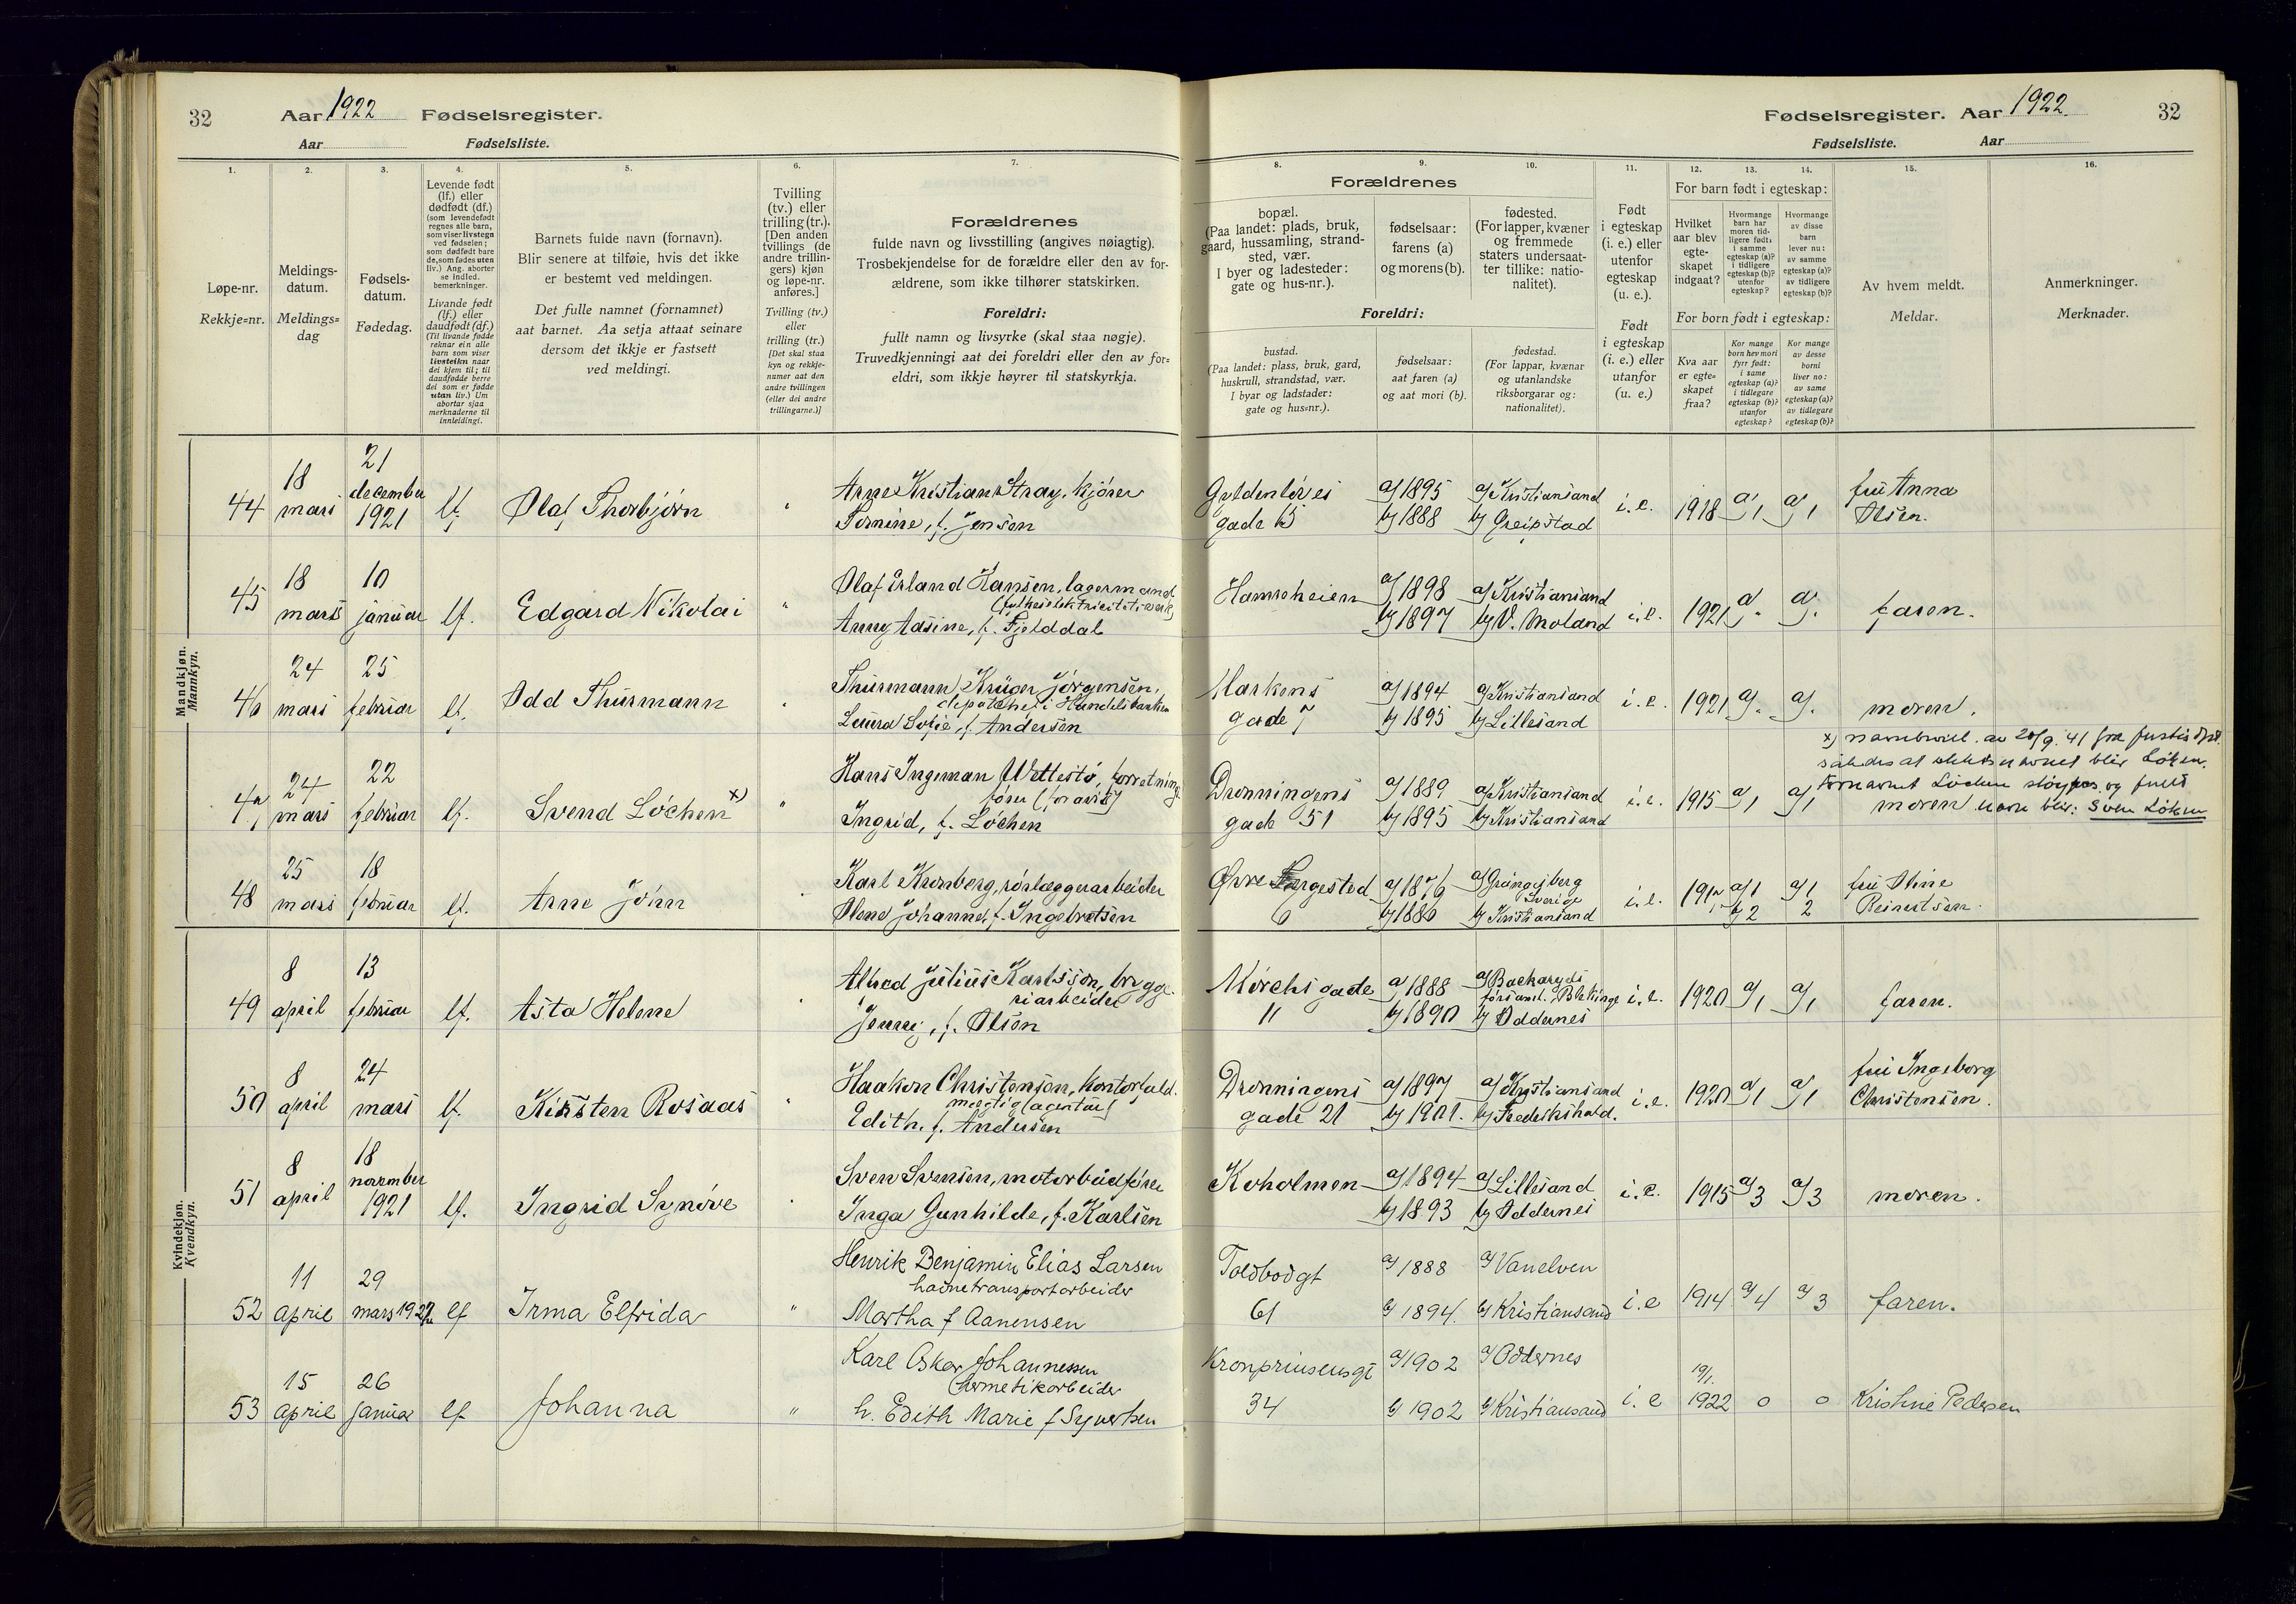 32 Aar 1922 Fødselsregister.
Aar Fødselsliste.
Fødselsregister. Aar 1922. 32
Fødselsliste. Aar
1. 2. 3. 4. 5. 6. 7.
Løpe-nr.
Rekkje=nr.
Meldings-
datum.
Meldings=
dag
Fødsels-
datum.
Fødedag.
Levende født
(lf.) eller
dødfødt (df.)
(som levendefødt
regnes alle barn,
som viser livstegn
ved fødselen;
som dødfødt bare
de, som fødes uten
liv.) Ang. aborter
se indled.
bemerkninger.
Livande født
(lf.) eller
daudfødt (df.)
(Til livande fødde
reknar ein alle
barn som viser
livsteikn naar
dei kjem til; til
daudfødde berre
dei som er fødde
utan liv.) Um
abortar sjaa
merknaderne til
innleidingi.
Barnets fulde navn (fornavn).
Blir senere at tilføie, hvis det ikke
er bestemt ved meldingen.
Det fulle namnet (fornamnet)
aat barnet. Aa setja attaat seinare
dersom det ikkje er fastsett
ved meldingi.
Tvilling
(tv.) eller
trilling (tr.).
[Den anden
tvillings (de
andre trillin-
gers) kjøn
og løpe-nr.
anføres.]
Tvilling (tv.)
eller
trilling (tr.)
[Det skal staa
kyn og rekkje-
numer aat den
andre tvillingen
(eller dei andre
trillingarne.)]
Forældrenes
fulde navn og livsstilling (angives nøiagtig).
Trosbekjendelse for de forældre eller den av for-
ældrene, som ikke tilhører statskirken.
Foreldri:
fullt namn og livsyrke (skal staa nøgje).
Truvedkjenningi aat dei foreldri eller den av for=
eldri, som ikkje høyrer til statskyrkja.
8. 9. 10. 11. 12. 13. 14. 15. 16.
Forældrenes
bopæl.
(Paa landet: plads, bruk,
gaard, hussamling, strand-
sted, vær.
I byer og ladesteder:
gate og hus-nr.).
fødselsaar:
farens (a)
og morens (b).
fødested.
(For lapper, kvæner
og fremmede
staters undersaat-
ter tillike: natio-
nalitet).
Foreldri:
bustad.
(Paa landet: plass, bruk, gard,
huskrull, strandstad, vær.
I byar og ladstader:
gate og hus=nr.).
fødselsaar:
aat faren (a)
og aat mori (b).
fødestad.
(For lappar, kvænar
og utanlandske
riksborgarar og:
nationalitet).
Født
i egteskap
(i. e.) eller
utenfor
egteskap
(u. e.).
Født
i egteskap
(i. e.) eller
utanfor
(u. e.)
For barn født i egteskap:
Hvilket
aar blev
egte-
skapet
indgaat?
Hvormange
barn har
moren tid-
ligere født:
i samme
egteskap (a)?
i tidligere
egteskap (b)?
utenfor
egteskap?
Hvormange
av disse
barn
lever nu:
av samme
egteskap (a)?
av tidligere
egteskap (b)?
For born født i egteskap:
Kva aar
er egte-
skapet
fraa?
Kor mange
born hev mori
fyrr født:
i same
egteskap (a)?
i tidlegare
egteskap (b)?
utanfor
egteskap?
Kor mange
av desse
borni
liver no:
av same
egteskap (a)?
av tidlegare
egteskap (b)?
Av hvem meldt.
Meldar.
Anmerkninger.
Merknader.
Mandkjøn.
Mannkyn.
44 18 mars 21 december 1921 lf. Olaf Thorbjørn " Arne Kristian Stray, kjører
f. Jensen
Gyldenløves gade 15 a) 1895 b) 1888 a) Kristiansand b) Greipstad i.e. 1918 a) 1 a) 1 fru Anna Olsen.
45 18 mars 10 januar lf. Edgard Nikolai " Olaf Erland Hansen, lagermand
Anny Aasine, f. Fjelddal
Hamreheien a) 1898 b) 1897 a) Kristiansand b) V. Moland i.e. 1921 a). a). faren.
46 24 mars 25 februar lf. Odd Thurmann " Thurmann Krüger Jørgensen,
i Handelsbanken
Laura Sofie, f. Andersen
Markens gade 7 a) 1894 b) 1895 a) Kristiansand b) Lillesand i.e. 1921 a). a). moren.
47 24 mars 22 februar lf. Svend Løchen x) " Hans Ingeman Wettestø, forretnings
fører (for avis)
Ingrid, f. Løchen
Dronningens gade 51 a) 1889 b) 1895 a) Kristiansand b) Kristiansand i.e. 1915 a) 1 a) 1 moren
x) navnebevill. av 20/9. 41 fra Justis dpt.
således at slektsnavnet blir Løken.
Fornavnet Løchen sløyfes og fulle
navn blir: Sven Løken
48 25 mars 18 februar lf. Arne John " Karl Kronberg, rørlæggerarbeider
Olene Johanne, f. Ingebretsen
Øvre 6 a) 1876 b) 1886 a) Grängesberg Sverige b) Kristiansand i.e. 1917 a) 1 b) 2 a) 1 2 fru Oline Reinertsen.
Kvindekjøn.
Kvendkyn.
49 8 april 13 februar lf. Asta Helene " Alfred Julius Karlsson, brygge-
riarbeider
Jenny, f. Olsen
Mørchs gade 11 a) 1888 b) 1890 a) Backaryds församl., Blekinge b) Oddernes i.e. 1920 a) 1 a) 1 faren.
50 8 april 24 mars lf. Kirsten Rosaas " Haakon Christensen, kontorfuld-
mægtig (agentur)
Edith, f. Andersen
Dronningens gade 21 a) 1897 b) 1901. a) Kristiansand b) Frederikshald. i.e. 1920 a) 1 a) 1 fru Ingeborg Christensen.
51 8 april 18 november 1921 lf. Ingrid Synøve " Sven Svensen, motorbaadfører
Inga Gunhilde, f. Karlsen
Koholmen a) 1894 b) 1893 a) Lillesand b) Oddernes i.e. 1915 a) 3 a) 3 moren.
52 11 april 29 mars 1922 lf Irma Elfrida " Henrik Benjamin Elias Larsen
havnetransportarbeider
Martha f Aanensen
Toldbodgt 61 a) 1888 b) 1894. a) Vanelven b) Kristiansand i.e 1914 a) 4 a) 3 faren.
53 15 april 26 januar lf Johanna " Karl Oskar Johannessen
hermetikarbeider
h. Edith Marie f Syvertsen
Kronprinsensgt 34 a) 1902 b) 1902 a) Oddernes b) Kristiansand i.e 19/1. 1922 0 0 Kristine Pedersen